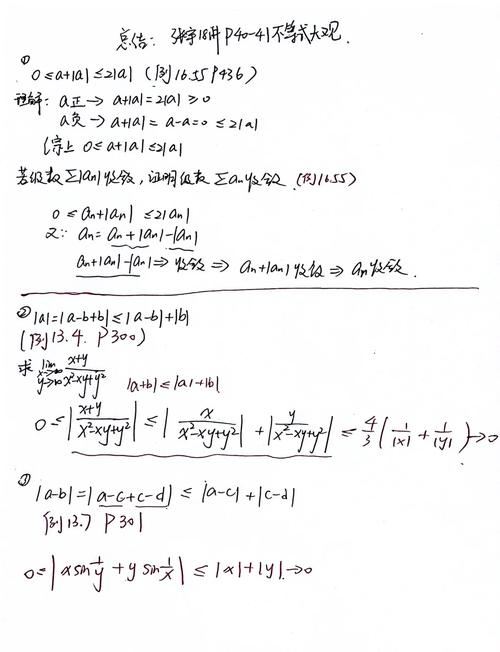 总结: 张宇18讲 P40-41 不等式大观.
①
0 ≤ a+|a| ≤ 2|a| (例16.55 P436)
理解: a正 → a+|a| = 2|a| ≥ 0
a负 → a+|a| = a-a=0 ≤ 2|a|
综上 0 ≤ a+|a| ≤ 2|a|
若级数 Σ|an| 收敛, 证明级数 Σan 收敛. (例16.55)
0 ≤ an+|an| ≤ 2|an|
又∵ an = an+|an|-|an|
an+|an|-|an| ⇒ 收敛 ⇒ an+|an| 收敛 ⇒ an 收敛.
② |a|=|a-b+b| ≤ |a-b|+|b|
(例13.4. P300)
求 lim x→∞ y→∞ x+y/x²-xy+y² |a+b| ≤ |a|+|b|
0 ≤ |x+y/x²-xy+y²| ≤ |x/x²-xy+y²| + |y/x²-xy+y²| ≤ 4/3 (1/|x| + 1/|y|) → 0
③
|a-b|=|a-c+c-d| ≤ |a-c|+|c-d|
例13.7 P301
0 = |x sin 1/y + y sin 1/x| ≤ |x|+|y| → 0